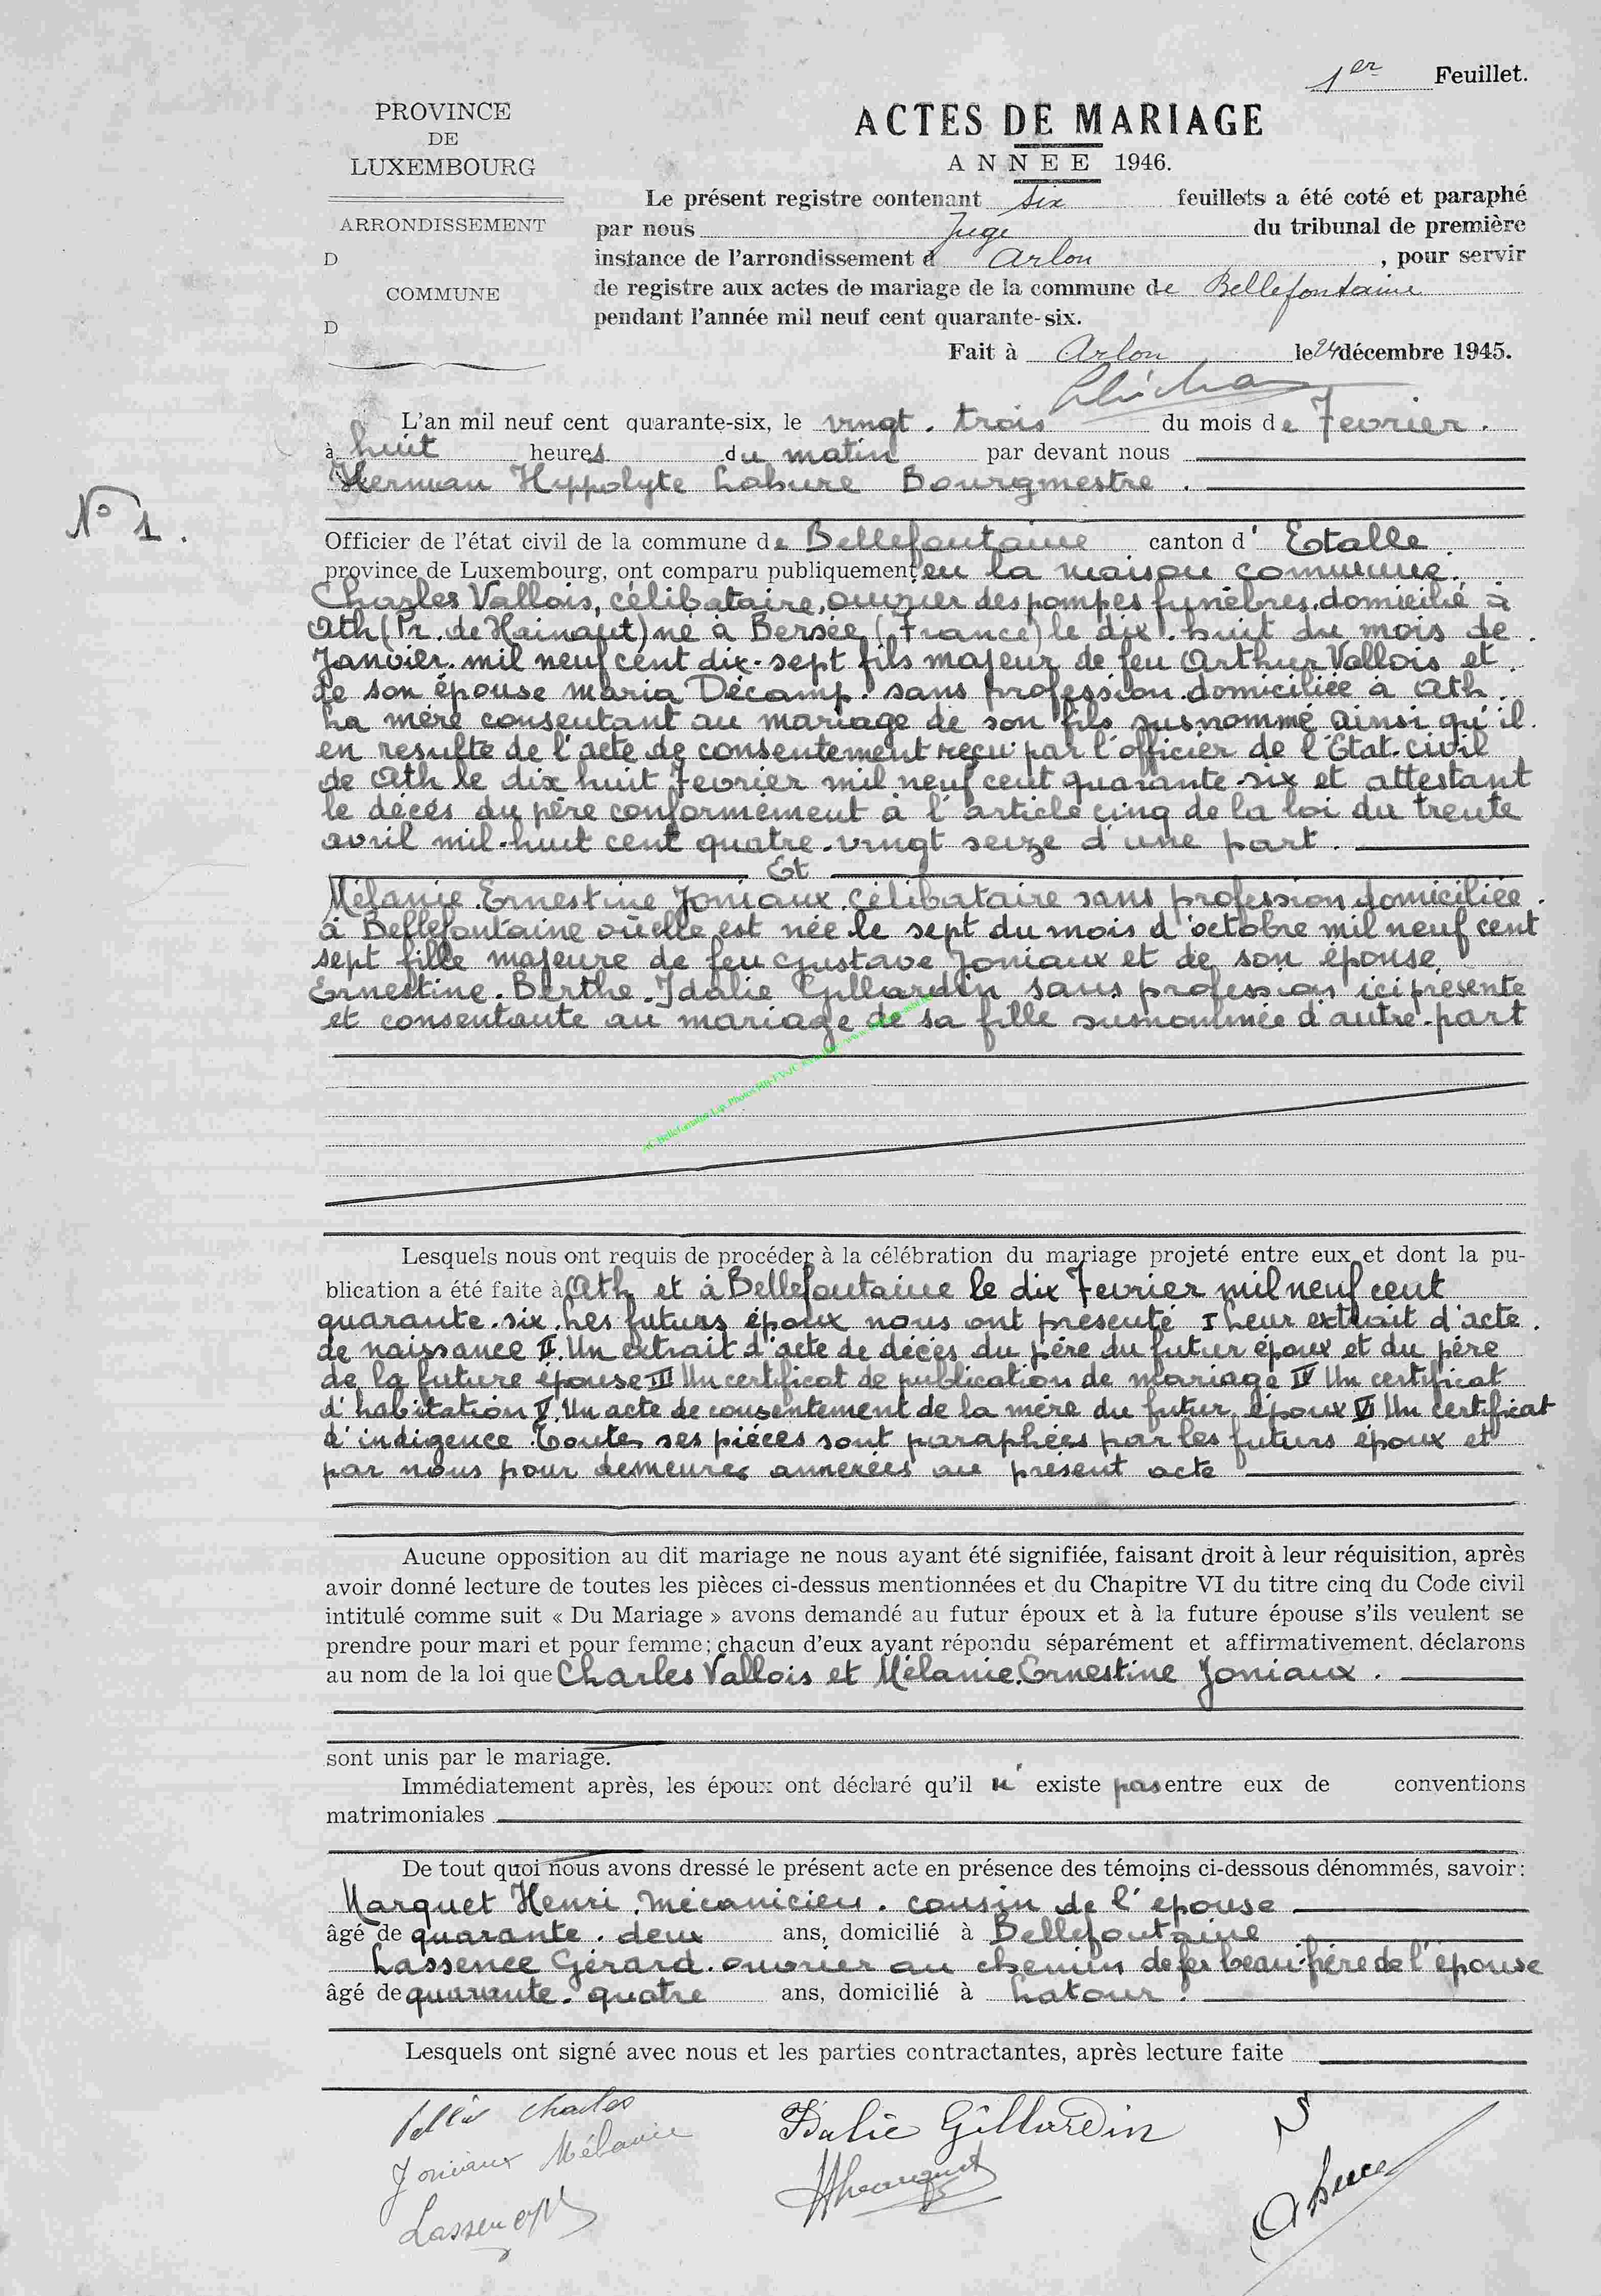 1er Feuillet.
PROVINCE
DE
LUXEMBOURG
ARRONDISSEMENT
D
COMMUNE
D
ACTES DE MARIAGE
ANNEE 1946.
Le présent registre contenant six feuillets a été coté et paraphé
par nous Juge du tribunal de première
instance de l'arrondissement d Arlon, pour servir
de registre aux actes de mariage de la commune de Bellefontaine
pendant l'année mil neuf cent quarante-six.
Fait à Arlon le 24 décembre 1945.
L'an mil neuf cent quarante-six, le vingt.trois du mois de Fevrier.
à huit heures du matin par devant nous
Herman Hyppolyte Lahure Bourgmestre.
No 1.
Officier de l'état civil de la commune de Bellefontaine canton d' Etalle.
province de Luxembourg, ont comparu publiquement en la maison commune.
Charles Vallois, célibataire, ouvrier des pompes funèbres, domicilié à
Ath (Pr. de Hainaut) né à Bersée (France) le dix.huit du mois de
Janvier. mil neuf cent dix-sept fils majeur de feu Arthur Vallois et
de son épouse Maria Décamp. sans profession domiciliée à Ath.
La mère consentant au mariage de son fils susnommé ainsi qu'il
en resulte de l'acte de consentement reçu par l'officier de l'Etat.civil
de Ath le dix huit Fevrier mil neuf cent quarante-six et attestant
le décès du père conformément à l'article cinq de la loi du trente
avril mil-huit cent quatre-vingt seize d'une part.
Et
Mélanie Ernestine Joniaux célibataire sans profession domiciliée
à Bellefontaine où elle est née le sept du mois d'octobre mil neuf cent
sept fille majeure de feu Gustave Joniaux et de son épouse
Ernestine.Berthe.Idalie Gillardin sans profession ici présente
et consentante au mariage de sa fille susnommée d'autre part
Lesquels nous ont requis de procéder à la célébration du mariage projeté entre eux et dont la pu-
blication a été faite à Ath et à Bellefontaine le dix Fevrier mil neuf cent
quarante.six. Les futurs époux nous ont présenté I Leur extrait d'acte
de naissance II. Un extrait d'acte de décès du père du futur époux et du père
de la future épouse III Un certificat de publication de mariage IV Un certificat
d'habitation V. Un acte de consentement de la mère du futur époux VI Un certificat
d'indigence. Toutes ses pièces sont paraphées par les futurs époux et
par nous pour demeurer annexées au présent acte
Aucune opposition au dit mariage ne nous ayant été signifiée, faisant droit à leur réquisition, après
avoir donné lecture de toutes les pièces ci-dessus mentionnées et du Chapitre VI du titre cinq du Code civil
intitulé comme suit « Du Mariage » avons demandé au futur époux et à la future épouse s'ils veulent se
prendre pour mari et pour femme; chacun d'eux ayant répondu séparément et affirmativement, déclarons
au nom de la loi que Charles Vallois et Mélanie.Ernestine Joniaux.
sont unis par le mariage.
Immédiatement après, les époux ont déclaré qu'il n' existe pas entre eux de conventions
matrimoniales
De tout quoi nous avons dressé le présent acte en présence des témoins ci-dessous dénommés, savoir:
Marquet Henri. mécanicien. cousin de l'épouse
âgé de quarante.deux ans, domicilié à Bellefontaine
Lassence Gérard. ouvrier au chemin de fer beau-frère de l'épouse
âgé de quarante.quatre ans, domicilié à Latour.
Lesquels ont signé avec nous et les parties contractantes, après lecture faite
Charles
Idalie Gillardin
Joniaux Mélanie